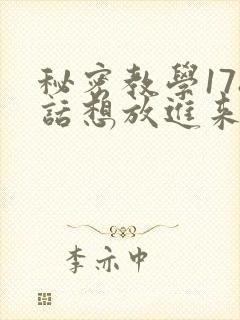 秘密教學17
話想放進來
李亦中